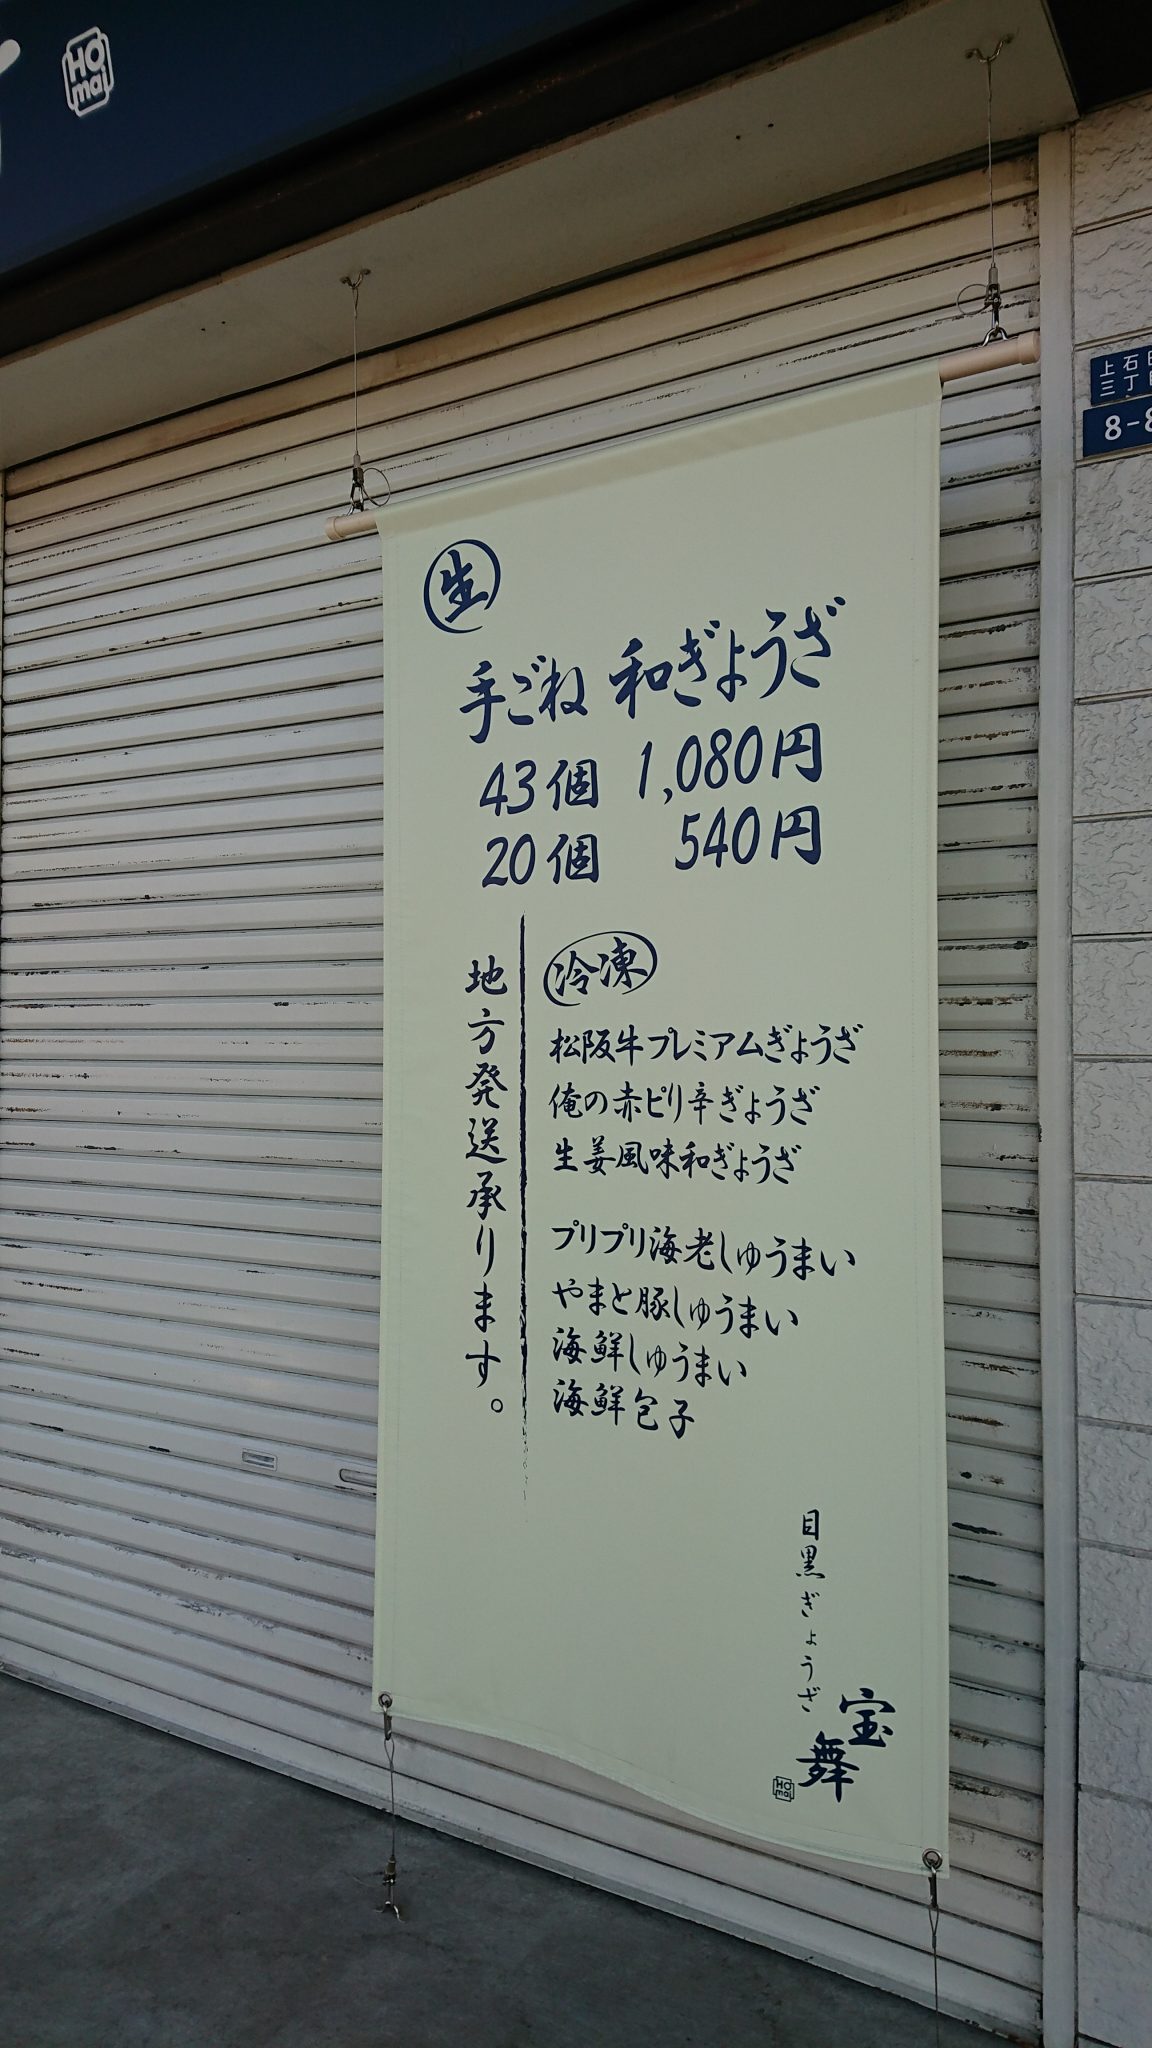 HO
mai
上石
三丁
8-8
生
手ごね 和ぎょうざ
43個 1,080円
20個 540円
冷凍
松阪牛プレミアムぎょうざ
俺の赤ピリ辛ぎょうざ
生姜風味和ぎょうざ
プリプリ海老しゅうまい
やまと豚しゅうまい
海鮮しゅうまい
海鮮包子
地方発送承ります。
目黒ぎょうざ
宝舞
HO
mai